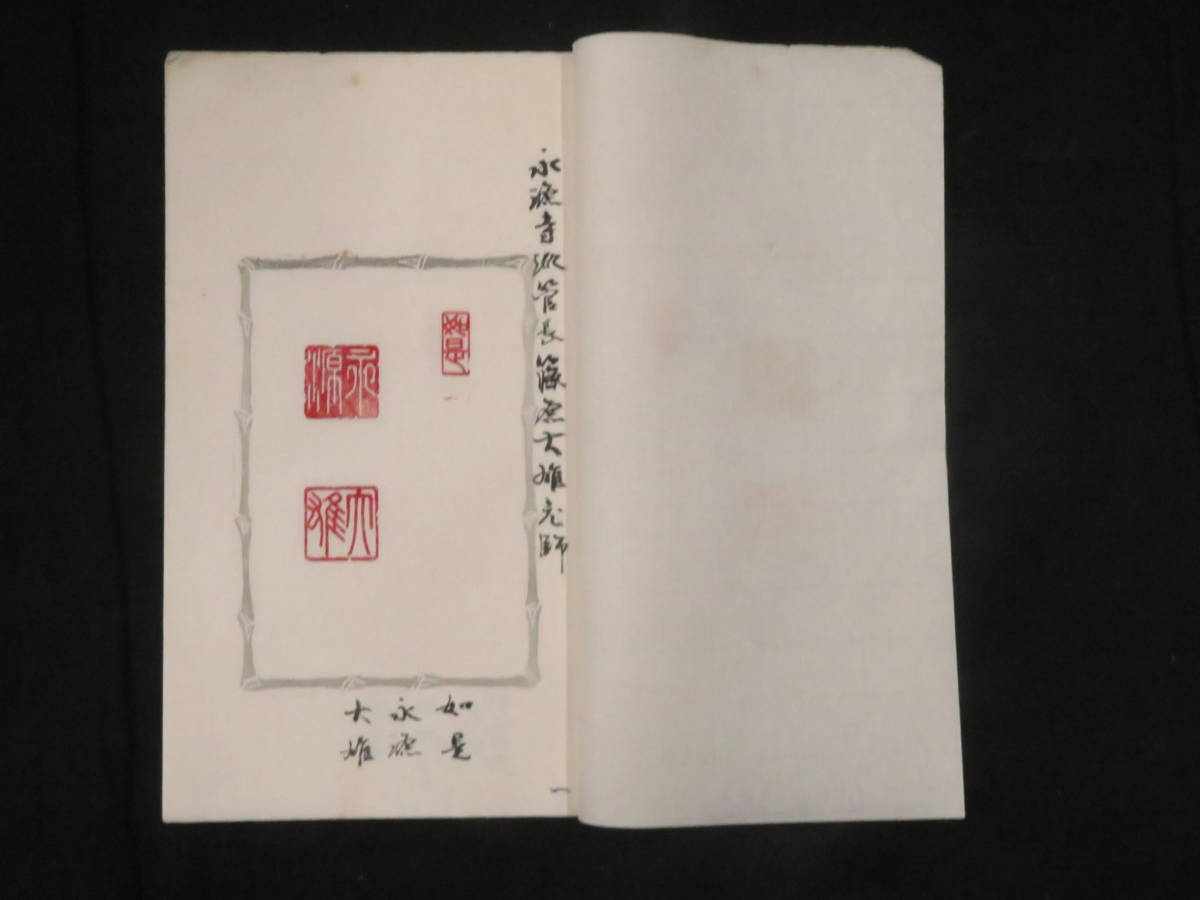 永源寺派管長篠原大雄老師
如是
永源
大雄
如是
永源
大雄
一